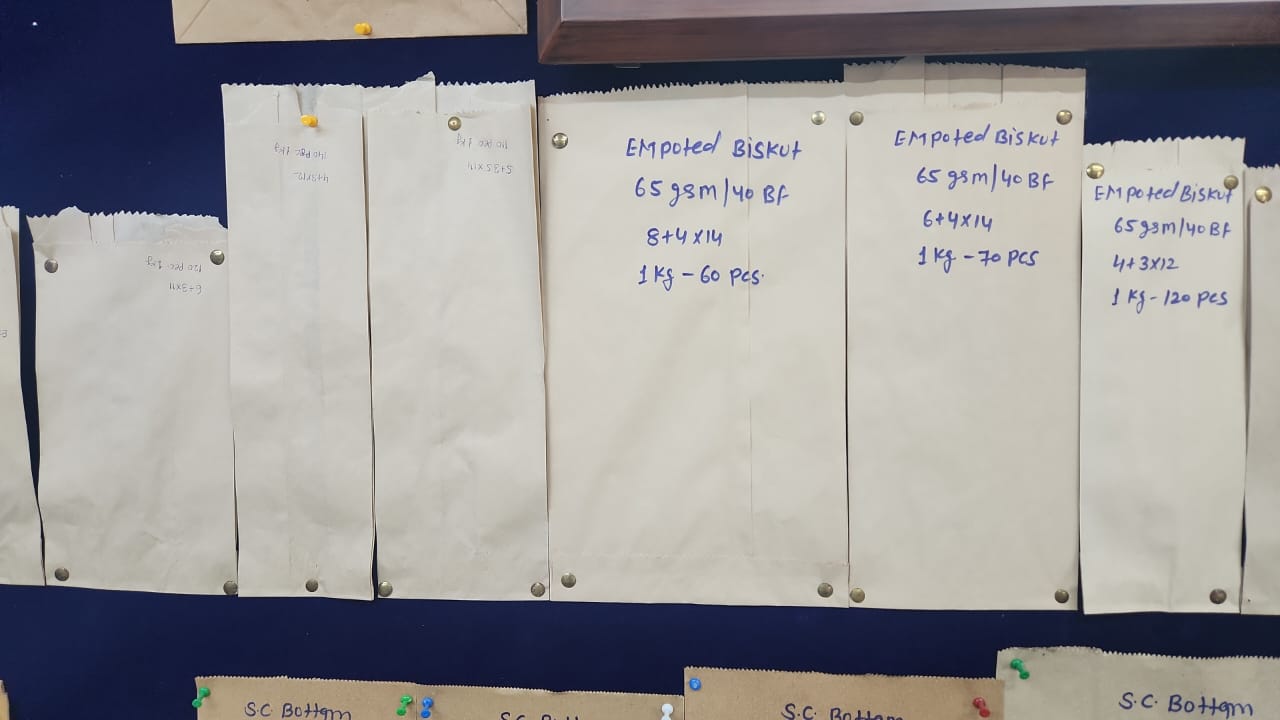 120 pec 1kg
6+3x11
140 pec 1kg
4+3x12
110 pec 1kg
5+3.5x14
EMpoted Biskut
65 gsm/40 BF
8+4x14
1 Kg - 60 pcs.
EMpoted Biskut
65 gsm/40 BF
6+4x14
1 Kg - 70 pcs
EMpoted Biskut
65 gsm/40 BF
4+3x12
1 Kg - 120 pcs
S.C. Bottom
S.C. Bottom
S.C. Bottom
S.C. Bottom